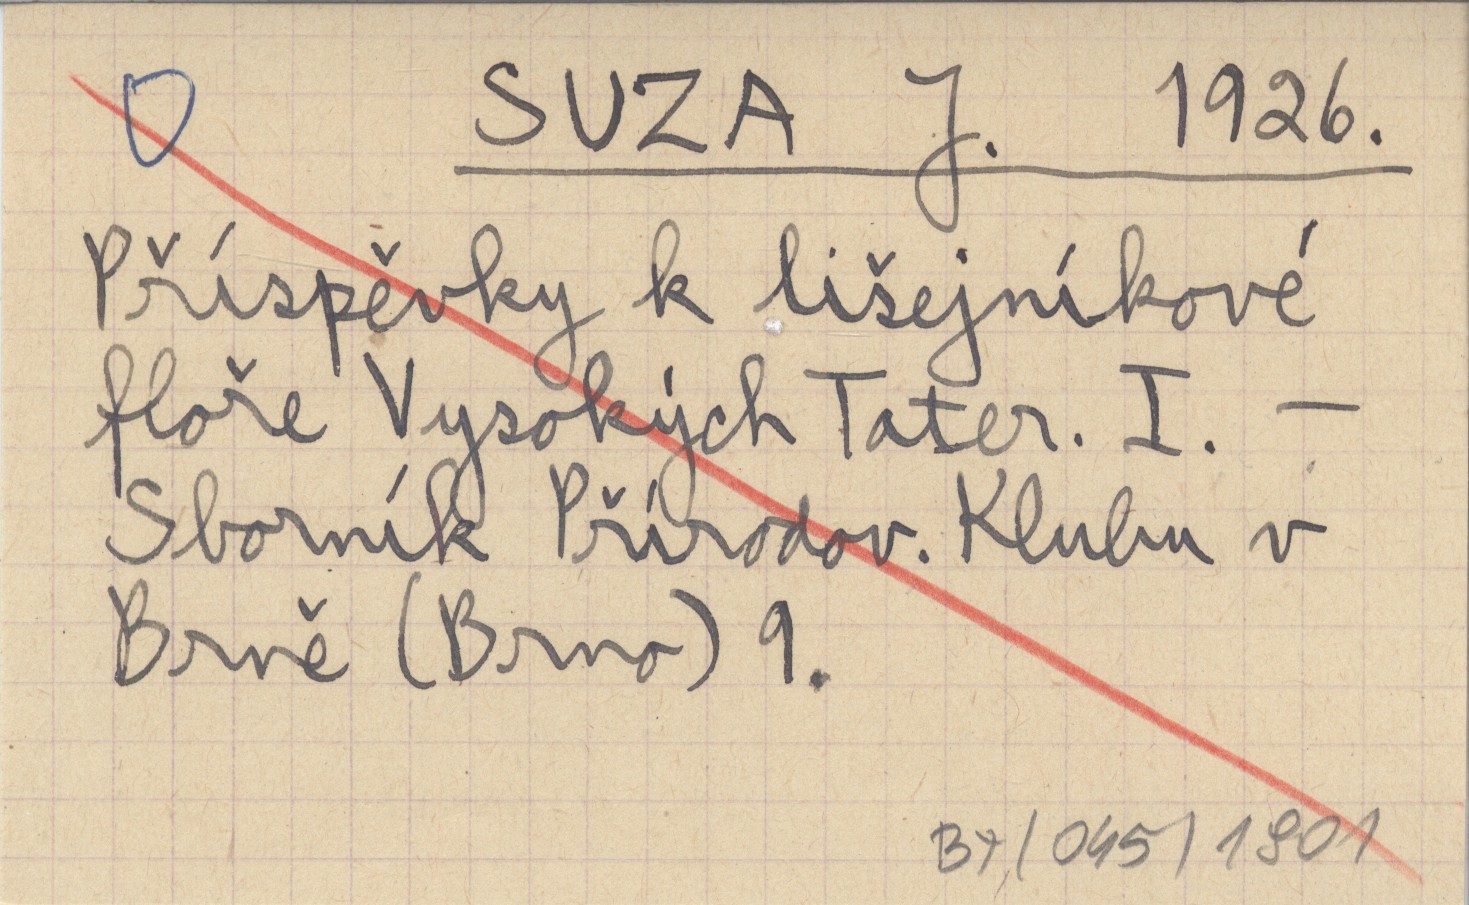 SUZA J. 1926.
Příspěvky k lišejníkové
floře Vysokých Tater. I. —
Sborník Přírodov. Klubu v
Brně (Brno) 9.
B7/045/1901